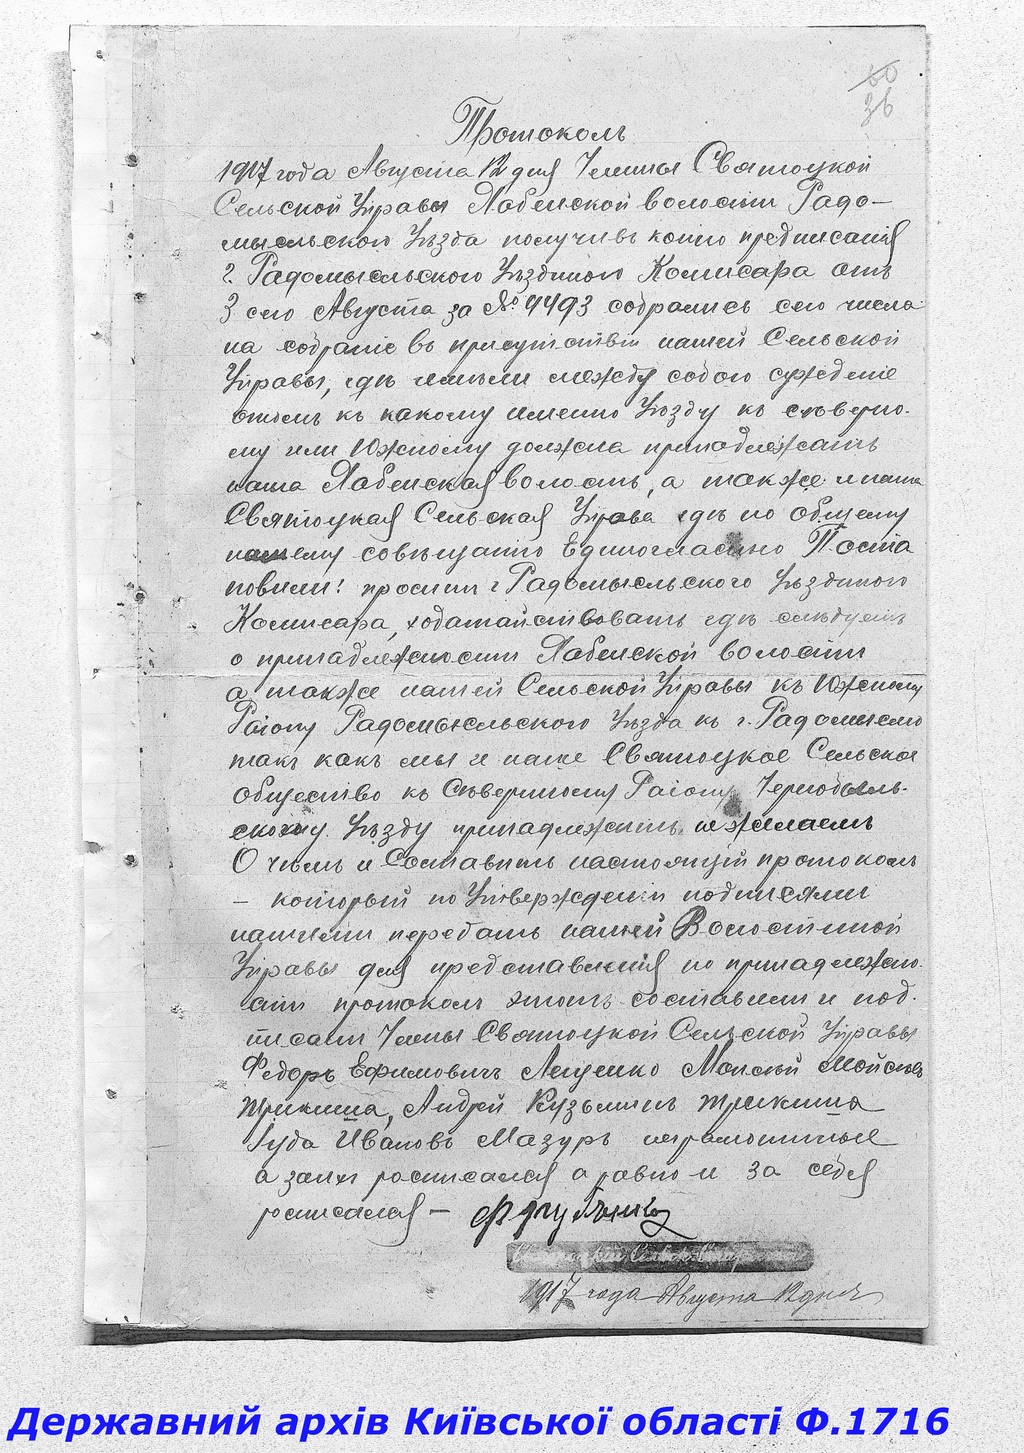 60
36
Протоколъ
1917 года Августа 12 дня Члены Святоцкой
Сельской Управы Хабенской волости Радо-
мысльского Уѣзда получивъ копію предписанія
г. Радомысльского Уѣздного Комисара отъ
3 сего Августа за № 4493 собрались сего числа
на собраніе въ присутствіи нашей Сельской
Управы, гдѣ имѣли между собою сужденіе
отомъ къ какому именно Уѣзду къ сѣверно-
му или Южному должна принадлежать
наша Хабенская волость, а также и наша
Святоцкая Сельская Управа гдѣ по общему
нашему совѣщанію Единогласно Поста
новили: просить г. Радомысльского Уѣздного
Комисара, ходатайствовать гдѣ слѣдуетъ
о принадлежности Хабенской волости
а также нашей Сельской Управы къ Южному
Раіону Радомысльского Уѣзда къ г. Радомыслю
такъ какъ мы и наше Святоцкое Сельское
общество къ Сѣверному Раіону Чернобыль-
скому Уѣзду принадлежать не желаемъ
О чемъ и Составить настоящій протоколъ
– который по Утвержденіи подписями
нашими передать нашей Волостной
Управы для представленія по принадлежно-
сти протоколъ этотъ составили и под-
писали Члены Святоцкой Сельской Управы
Федоръ Ефимовичъ Лещенко Моисей Мойсеев
Трикиша, Андрей Кузьминъ Трикиша
Іуда Ивановъ Мазуръ неграмотные
а заних росписался а равно и за себя
росписался –
1917 года Августа 12 дня
Державний архів Київської області Ф.1716